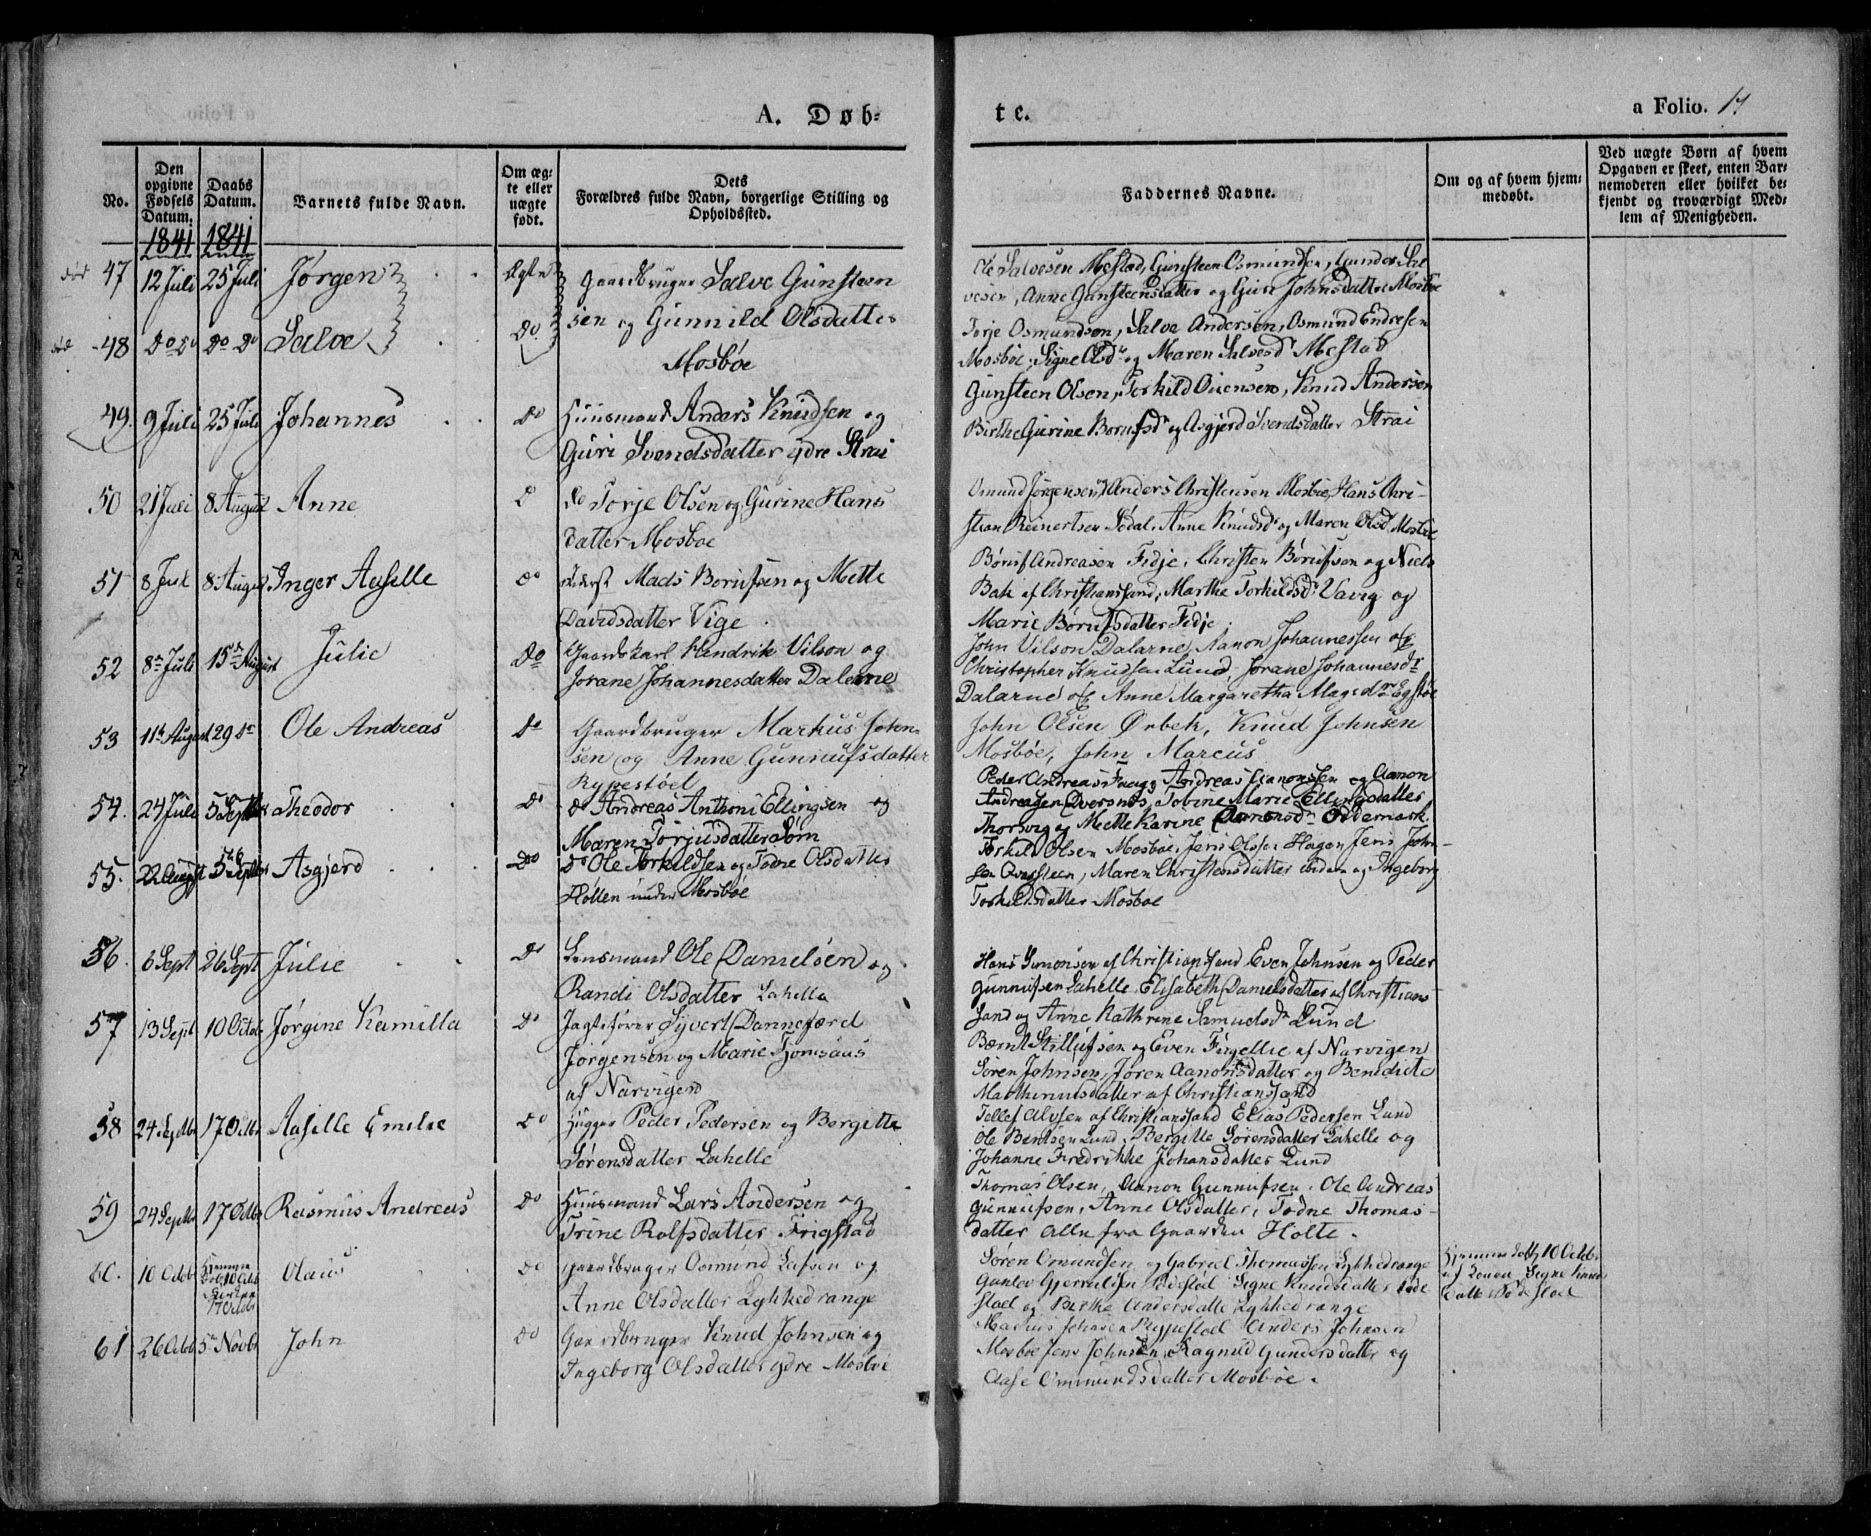 A. Døb-
te.
a Folio. 17
No.
Den opgivne Fødsels Datum.
Daabs Datum.
Barnets fulde Navn.
Om ægte eller uægte født.
Dets
Forældres fulde Navn, borgerlige Stilling og
Opholdssted.
Faddernes Navne.
Om og af hvem hjem-
medøbt.
Ved uægte Børn af hvem
Opgaven er skeet, enten Bar-
nemoderen eller hvilket be-
kjendt og troværdigt Med-
lem af Menigheden.
1841 1841
død 47 12 Juli 25 Juli Jørgen Ægte Gaardbruger Salve Gunsteen
sen og Gunnild Olsdatter
Mosbøe
Ole Salvesen Mestad, Gunsteen Osmundsen, Gunder Sal
vesen, Anne Gunsteensdatter og Guri Johnsdatter Mosbøe
48 Do Do Do Do Salve Do
Torje Osmundsen, Salve Andersen, Osmund Endresen
Mosbøe, Signe Olsdr og Maren Salvesdr Mestad
49. 9 Juli 25 Juli Johannes Do Huusmand Anders Knudsen og
Guri Svendsdatter ydre Strai
Gunsteen Olsen, Torkild Evensen, Knud Andersen
Birthe Gurine Børufsdr og Asgjerd Svendsdatter Strai
50 21 Juli 8 August Anne Do do Torje Olsen og Gurine Hans
datter Mosboe
Omund Jørgensen, Anders Christensen Mosbøe, Hans Chri-
stian Reinertsen Sødal, Anne Knudsdr og Maren Olsdr Mosbøe
51 8 Juli 8 August Inger Aaselle Do Mads Børufsen og Mette
Davidsdatter Vige
Børuf Andreasen Fidje, Christen Børufsen og Niels
Bak af Christianssand, Marthe Torkildsdr Vavig og
Marie Børufsdatter Fidje
52 8de Juli 15de August Julie Do Gaardskarl Hendrik Vilson og
Jorane Johannesdatter Dalerne
John Vilson Dalarne, Aanon Johannessen og
Christopher Knudsen Lund, Jorane Johannesdr
Dalarne og Anne Margaretha Magsdr Egstøe
53 11te August 29 Do Ole Andreas Do Gaardbruger Markus John-
sen og Anne Gunnufsdatter
Rypestøel
John Olsen Ørbek, Knud Johnsen
Mosbøe, John Marcus
54. 24 Juli 5 Septbr Theodor Do Do Andreas Anthoni Ellingsen og
Maren Torjusdatter Søm
Peder Andreas Faag, Andreas Aanonsen og Aanon
Andreasen Qversnes, Tobine Marie Ellingsdatter
Thorsvig og Mette Karine Aanonsdr Oddemark
55. 22 August 5te Septbr Asgjerd Do Do Ole Torkildsen og Todne Olsdatter
Holten under Mosboe
Torkild Olsen Mosboe, Jens Olsen Hagen, Jens John-
sen Qvasteen, Maren Christensdatter ibidem og Ingeborg
Torkildsdatter Mosboe
56. 6 Sept 26 Sept Julie Do Lensmand Ole Danielsen og
Randi Olsdatter Lahelle
Hans Simonsen af Christianssand, Even Johnsen og Peder
Gunnufsen Lahelle, Elisabeth Danielsdatter af Christians-
sand og Anne Kathrine Samuelsdr Lund
57 13 Sept 10 Octobr Jørgine Kamilla Do Jagtefører Syvert Dannefærd
Jørgensen og Marie Tjomsaas
af Narvigen
Bærnt Stillufsen og Even Fugellie af Narvigen
Søren Johnsen, Joren Aanonsdatter og Benedicte
Mathiusdatter af Christianssand
58 24 Septbr 17 Octbr Aaselle Emilie Do Hugger Peder Pedersen og Bergitte
Sørensdatter Lahelle
Tellef Alvsen af Christianssand, Elias Pedersen Lund
Ole Bentsen Lund, Bergitte Sørensdatter Lahelle og
Johanne Fredrikke Johansdatter Lund
59 24 Septbr 17 Octbr Rasmus Andreas Do Huusmand Lars Andersen og
Trine Rolfsdatter Frigstad
Thomas Olsen, Aanon Gunnufsen, Ole Andreas
Gunnufsen, Anne Olsdatter, Todne Thomas-
datter alle fra Gaarden Holte.
60. 10 Octobr Hjemme døbt 10 Octbr i Kirken 17 Octbr Olaus Do Gaardbruger Osmund Lassen og
Anne Olsdatter Lykkedrange
Søren Osmundsen og Gabriel Thomassen Lykkedrange
Gunlev Gjerulfsen Bødestad, Signe Knudsdatter Bøde
stad og Berthe Andersdatter Lykkedrange
Hjemmedøbt 10 Octbr
af Konen Signe Knud
datter Bødestad
61 26 Octob 5te Novbr John Do Gaardbruger Knud Johnsen og
Ingeborg Olsdatter ydre Mosbøe
Markus Johnsen Rypestøel, Anders Johnsen
Mosbøe, Jens Johnsen, Ragnild Gundersdatter og
Aase Ommundsdatter Mosbøe.